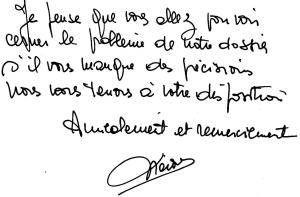 Je pense que vous allez pouvoir
cerner le problème de notre dossier
s'il vous manque des précisions
nous nous tenons à votre disposition
Amicalement et remerciement